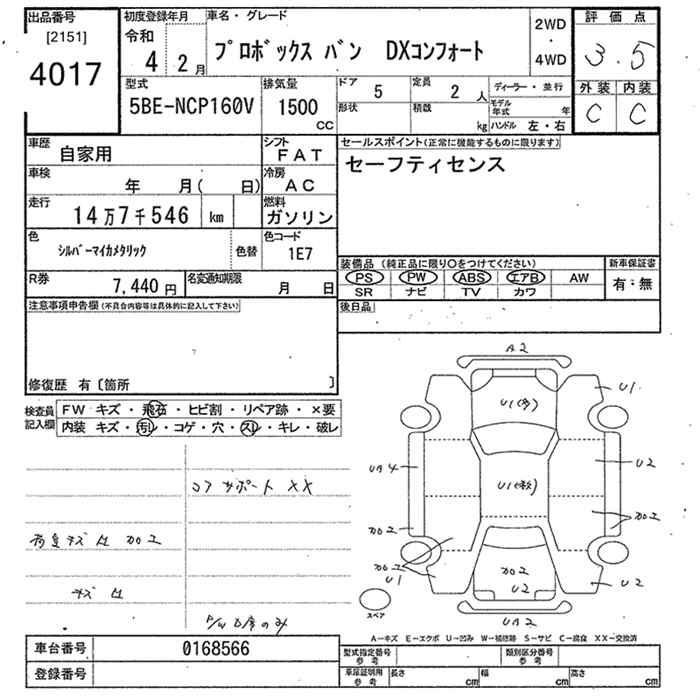 出品番号
[2151]
4017
初度登録年月
令和
4 2月
車名・グレード
プロボックス バン DXコンフォート
2WD
・
4WD
評価点
3.5
外装 内装
C C
型式
5BE-NCP160V
排気量
1500
CC
ドア 5
形状
定員 2 人
積載 kg
ディーラー・並行
モデル年式 年
ハンドル 左・右
車歴
自家用
シフト
FAT
車検
年 月( 日)
冷房
AC
走行
14万7千546 km
燃料
ガソリン
色
シルバーマイカメタリック
色替
色コード
1E7
R券
7,440円
名変通知期限
月 日
セールスポイント(正常に機能するものに限ります)
セーフティセンス
装備品(純正品に限り○をつけてください)
PS PW ABS エアB AW
SR ナビ TV カワ
新車保証書
有・無
後日品
注意事項申告欄(不具合内容等は具体的に記入して下さい)
修復歴 有〔箇所 〕
検査員記入欄
FW キズ・飛石・ヒビ割・リペア跡・×要
内装 キズ・汚レ・コゲ・穴・スレ・キレ・破レ
コアサポート XX
カロ2
A2
U1
U1(多)
UA4
U2
U1
カロ2
カロ2
カロ2
U1
カロ2
U2
U2
UA2
スペア
A-キズ E-エクボ U-凹み W-補修跡 S-サビ C-腐食 XX-交換済
車台番号
0168566
登録番号
型式指定番号
参考
類別区分番号
参考
車庫証明用
参考
長さ cm
幅 cm
高さ cm